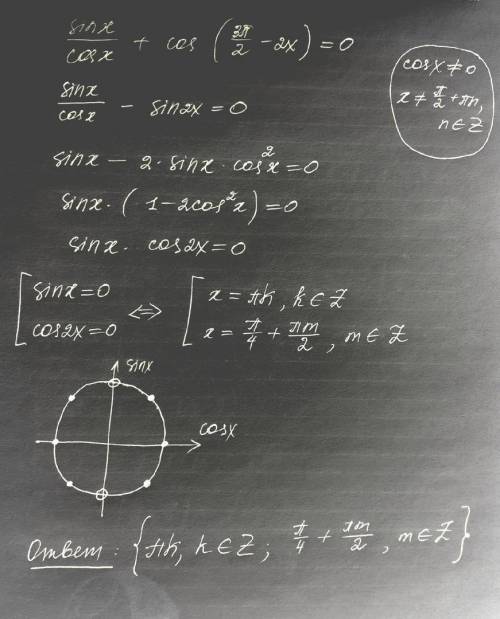 sinx/cosx + cos (3π/2 − 2x) = 0
cosx ≠ 0
x ≠ π/2 + πn,
n ∈ Z
sinx/cosx − sin2x = 0
sinx − 2·sinx·cos²x = 0
sinx·(1−2cos²x) = 0
sinx· cos2x = 0
[ sinx = 0 <=> [ x = πk, k ∈ Z
cos2x = 0 x = π/4 + πm/2, m ∈ Z
sinx
cosx
Ответ: {πk, k ∈ Z; π/4 + πm/2, m ∈ Z}